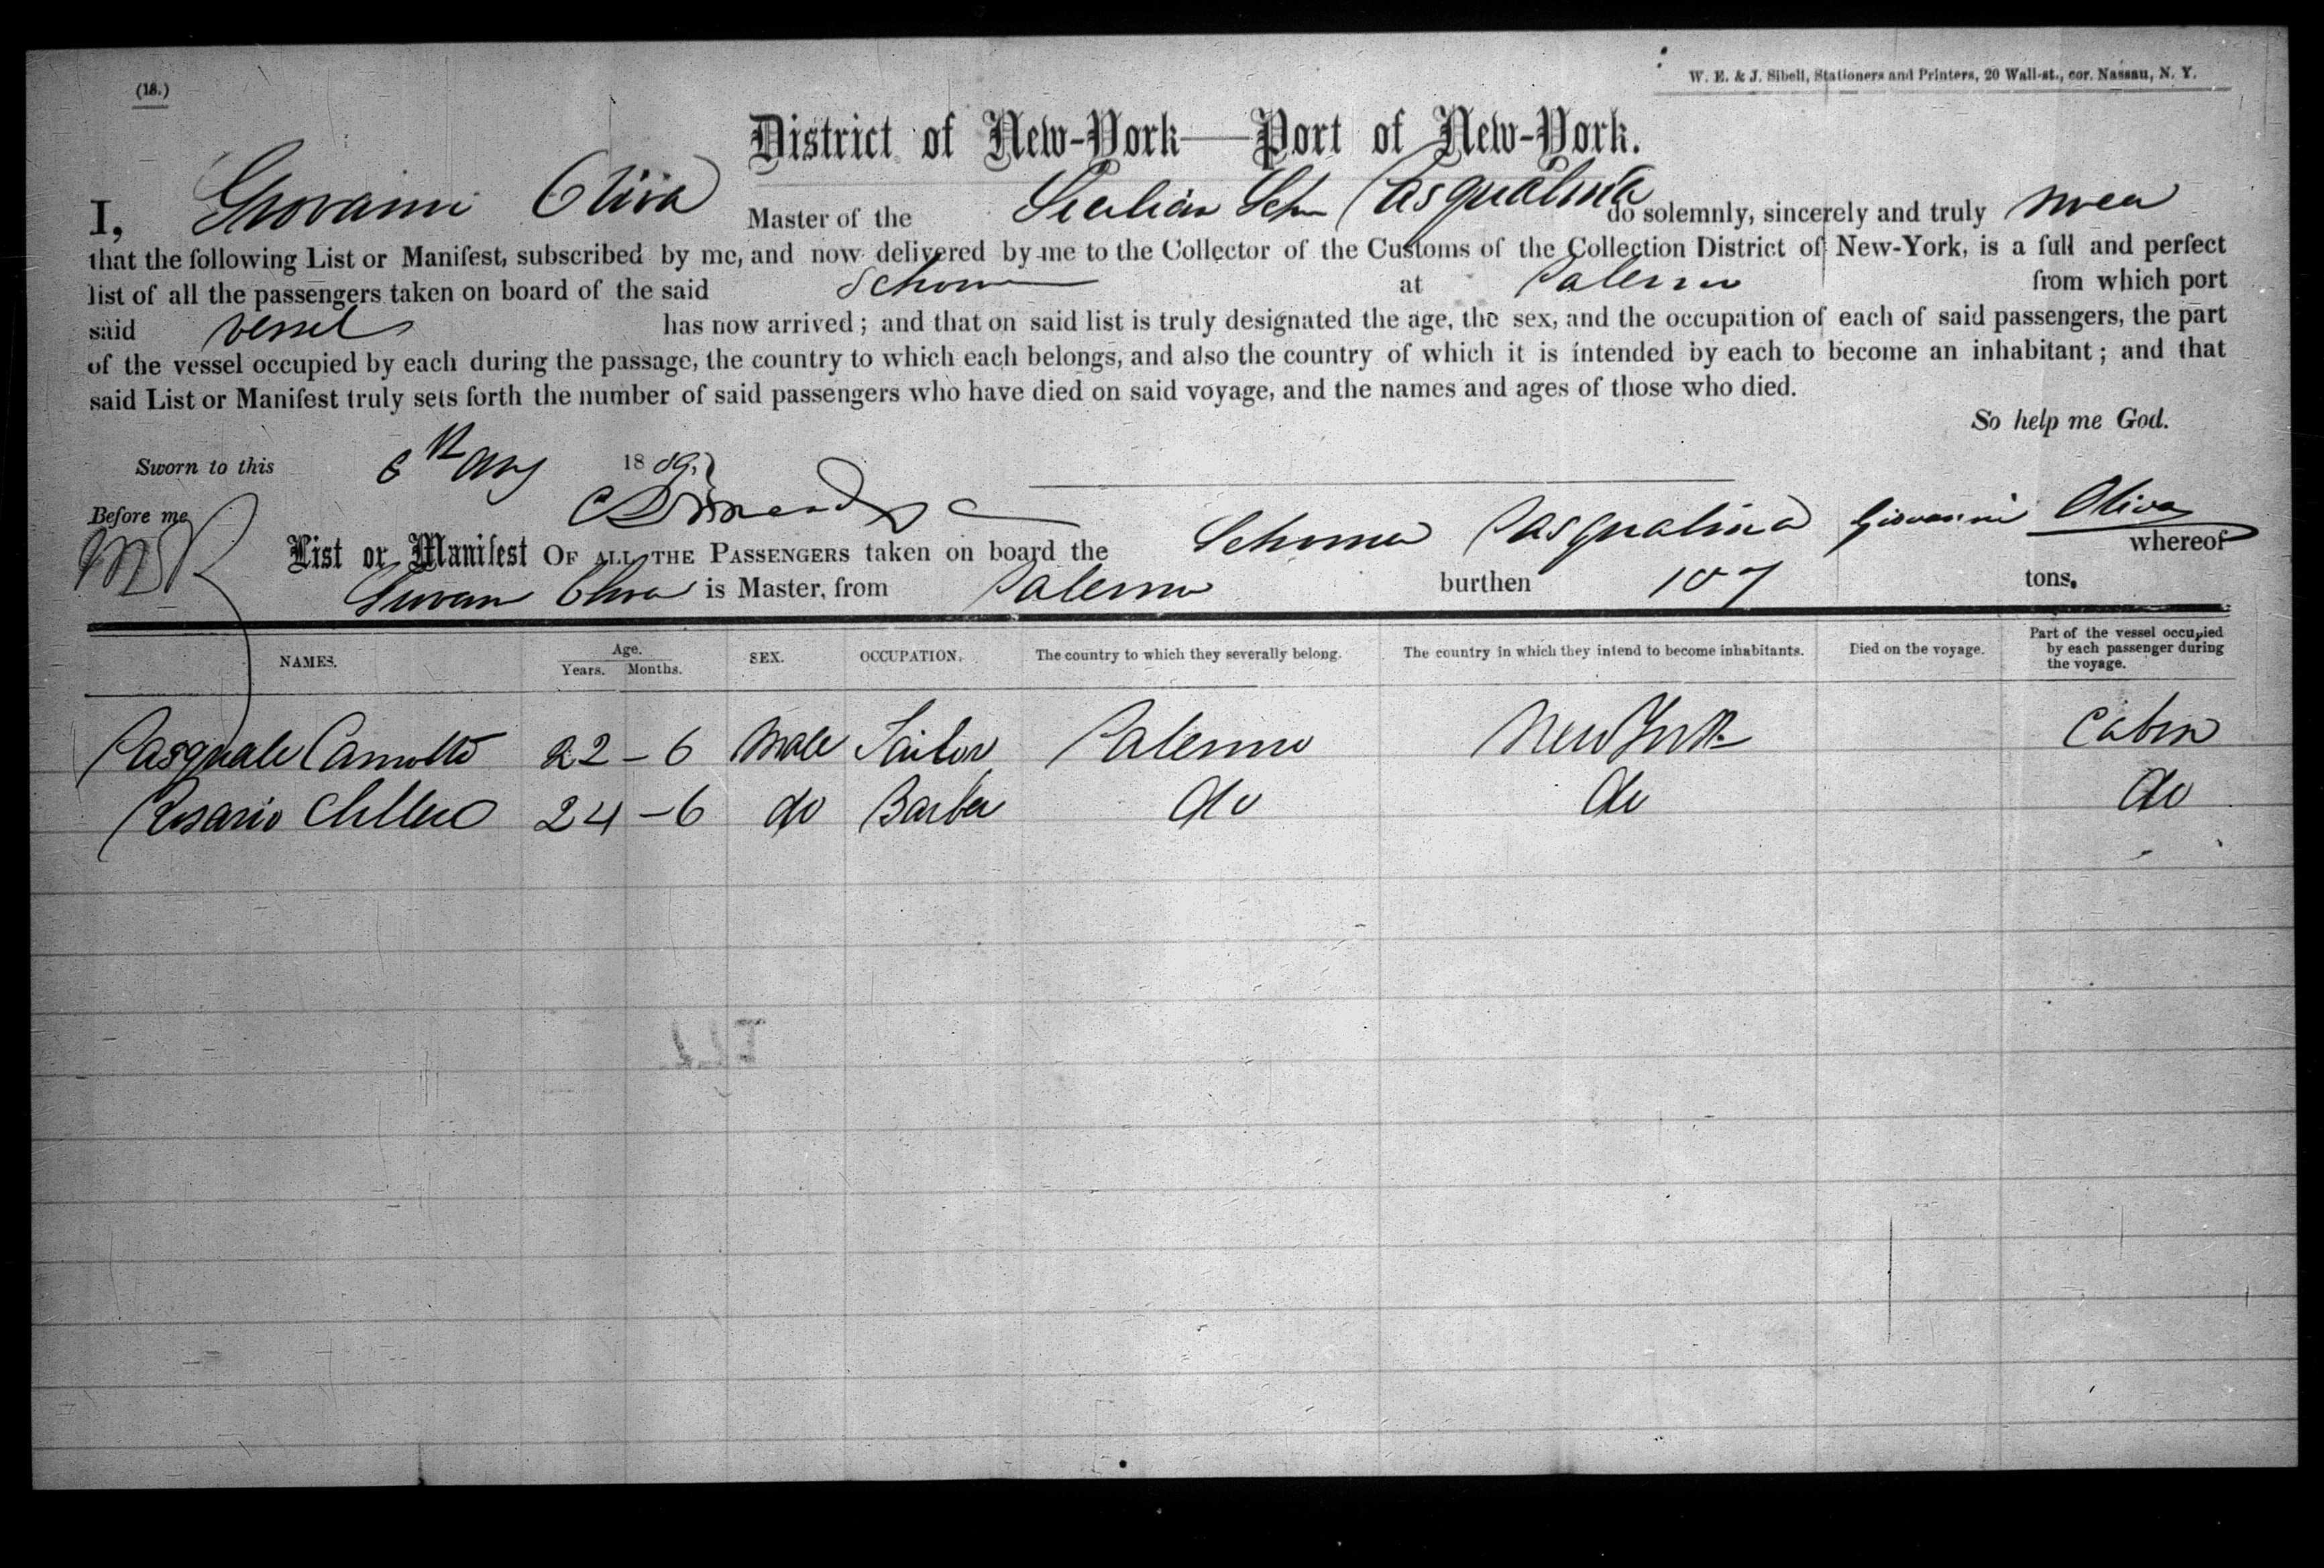 (18.)
W. E. & J. Sibell, Stationers and Printers, 20 Wall-st., cor. Nassau, N. Y.
District of New-York—Port of New-York.
I, Giovanni Oliva Master of the Sicilian Schr Pasqualina do solemnly, sincerely and truly swear
that the following List or Manifest, subscribed by me, and now delivered by me to the Collector of the Customs of the Collection District of New-York, is a full and perfect
list of all the passengers taken on board of the said Schooner at Palermo from which port
said vessel has now arrived; and that on said list is truly designated the age, the sex, and the occupation of each of said passengers, the part
of the vessel occupied by each during the passage, the country to which each belongs, and also the country of which it is intended by each to become an inhabitant; and that
said List or Manifest truly sets forth the number of said passengers who have died on said voyage, and the names and ages of those who died.
So help me God.
Sworn to this 6th 18
Before me
Giovanni Oliva
List or Manifest OF ALL THE PASSENGERS taken on board the Schooner Pasqualina whereof
Oliva is Master, from Palermo burthen 107 tons.
NAMES. Age. Years. Months. SEX. OCCUPATION. The country to which they severally belong. The country in which they intend to become inhabitants. Died on the voyage. Part of the vessel occupied by each passenger during the voyage.
Pasquale 22 - 6 Male Palermo New York Cabin
Rosario 24 - 6 do Barber do do do